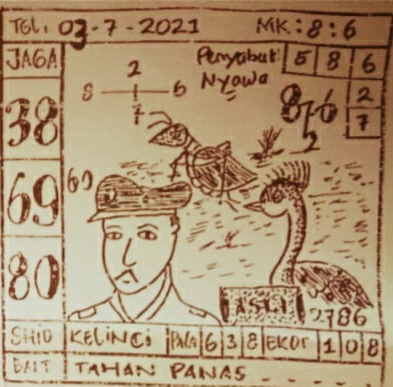 TGL, 03-7-2021 MK:8:6
JAGA
Penyabut Nyawa
5 8 6
2
7
2
8 6
7
38
69
80
60
ASLI
2786
SHIO KELINCI PALA 6 3 8 EKOR 1 0 8
BAIT TAHAN PANAS